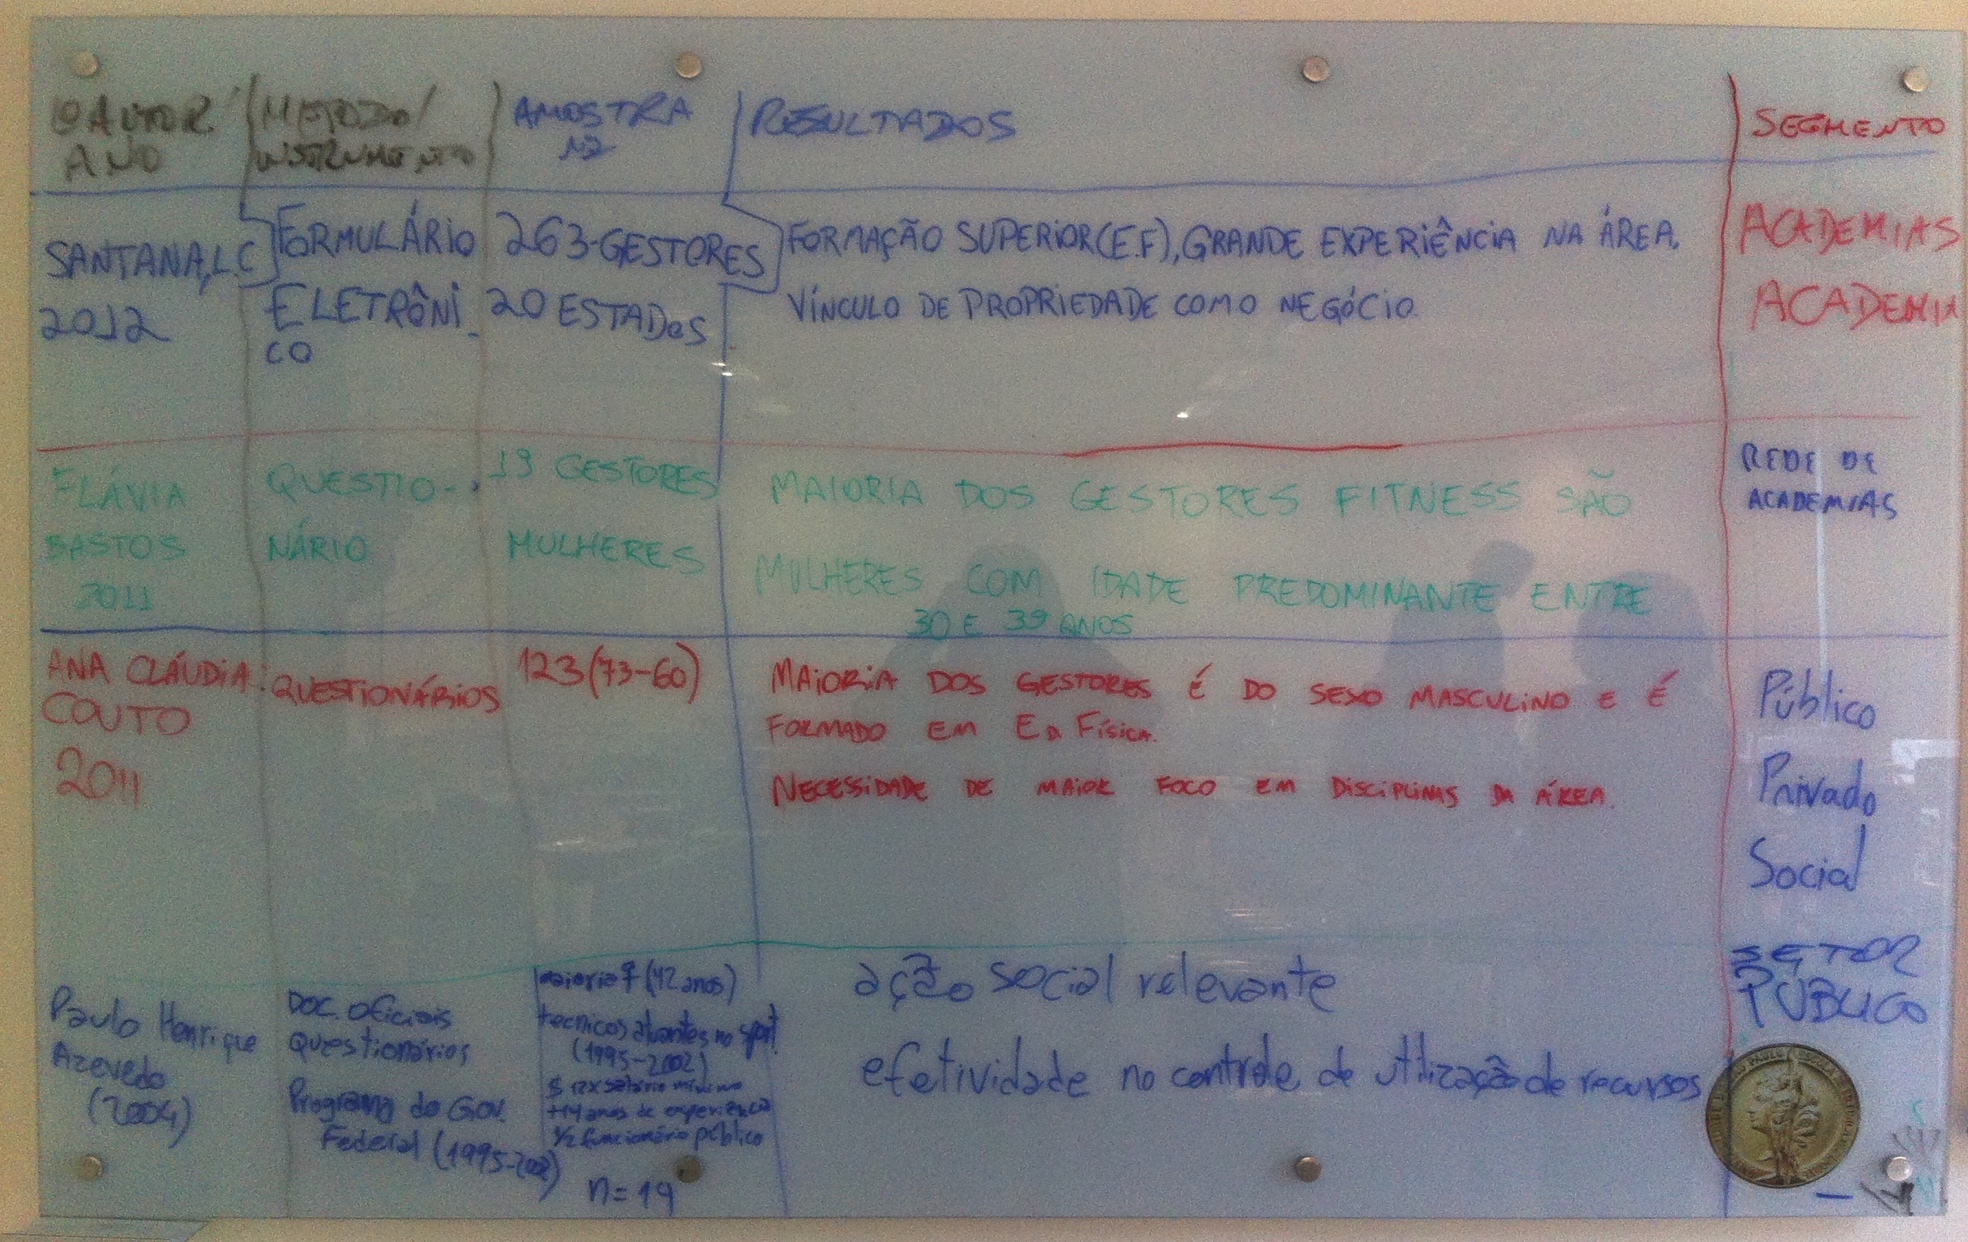 AUTOR
ANO
MÉTODO/
INSTRUMENTO
AMOSTRA
RESULTADOS
SEGMENTO
SANTANA, L.C
2012
FORMULÁRIO
ELETRÔNI-
CO
263-GESTORES
20 ESTADOS
FORMAÇÃO SUPERIOR(E.F), GRANDE EXPERIÊNCIA NA ÁREA.
VÍNCULO DE PROPRIEDADE COMO NEGÓCIO.
ACADEMIAS
ACADEMIA
FLÁVIA
BASTOS
2011
QUESTIO-
NÁRIO
19 GESTORES
MULHERES
MAIORIA DOS GESTORES FITNESS SÃO
MULHERES COM IDADE PREDOMINANTE ENTRE
30 E 39 ANOS
REDE DE
ACADEMIAS
ANA CLÁUDIA
COUTO
2011
QUESTIONÁRIOS
123(73-60)
MAIORIA DOS GESTORES É DO SEXO MASCULINO E É
FORMADO EM ED FÍSICA.
NECESSIDADE DE MAIOR FOCO EM DISCIPLINAS DA ÁREA.
Público
Privado
Social
Paulo Henrique
Azevedo
(2004)
DOC. oficiais
questionários
Programa do Gov.
Federal (1995-2002)
maioria ♀ (42 anos)
tecnicos atuantes no sport
(1995-2002)
$ 12x salário mínimo
+14 anos de experiência
1/2 funcionário público
n=19
ação social relevante
efetividade no controle de utilização de recursos
SETOR
PÚBLICO